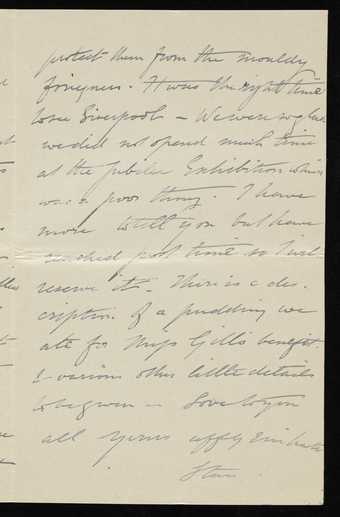 protect them from the mouldy
fogyness. It was the right time
to see Liverpool - We were so glad
we did not spend much time
at the Jubilee Exhibition which
was a poor thing. I have
more to tell you but have
reached post time so I will
reserve it. There is a des-
cription of a pudding we
ate for Miss Gill's benefit
& various other little details
to be given - Love to you
all Yours affly